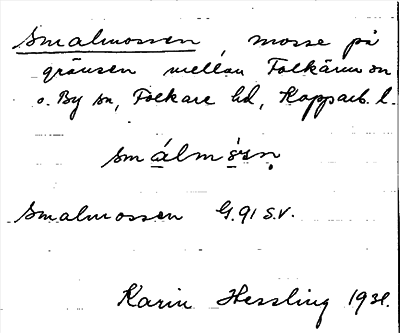 Smalmossen, mosse på
gränsen mellan Folkärna sn
o. By sn, Folkare hd, Kopparb. l.
smálmósn
Smalmossen G. 91 S.V.
Karin Hessling 1931.